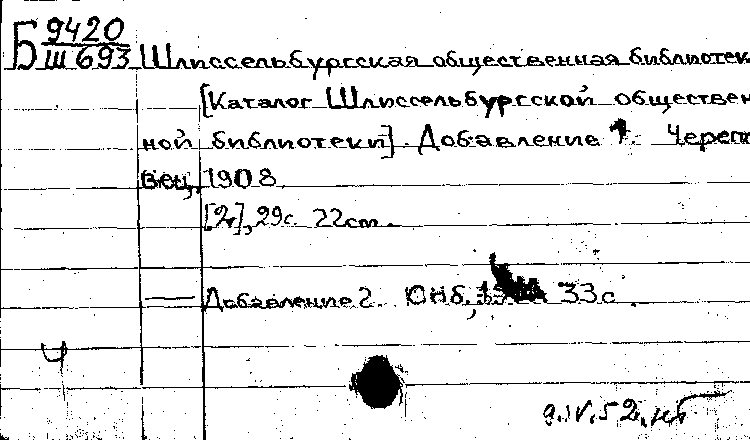 Б 9420
Ш 693 Шлиссельбургская общественная библиотек
[Каталог Шлиссельбургской обществен
ной библиотеки]. Добавление 1. Череп
вец, 1908.
[2], 29с. 22см.
— Добавление 2. СПб, 33с.
Ч
9.IV.52.